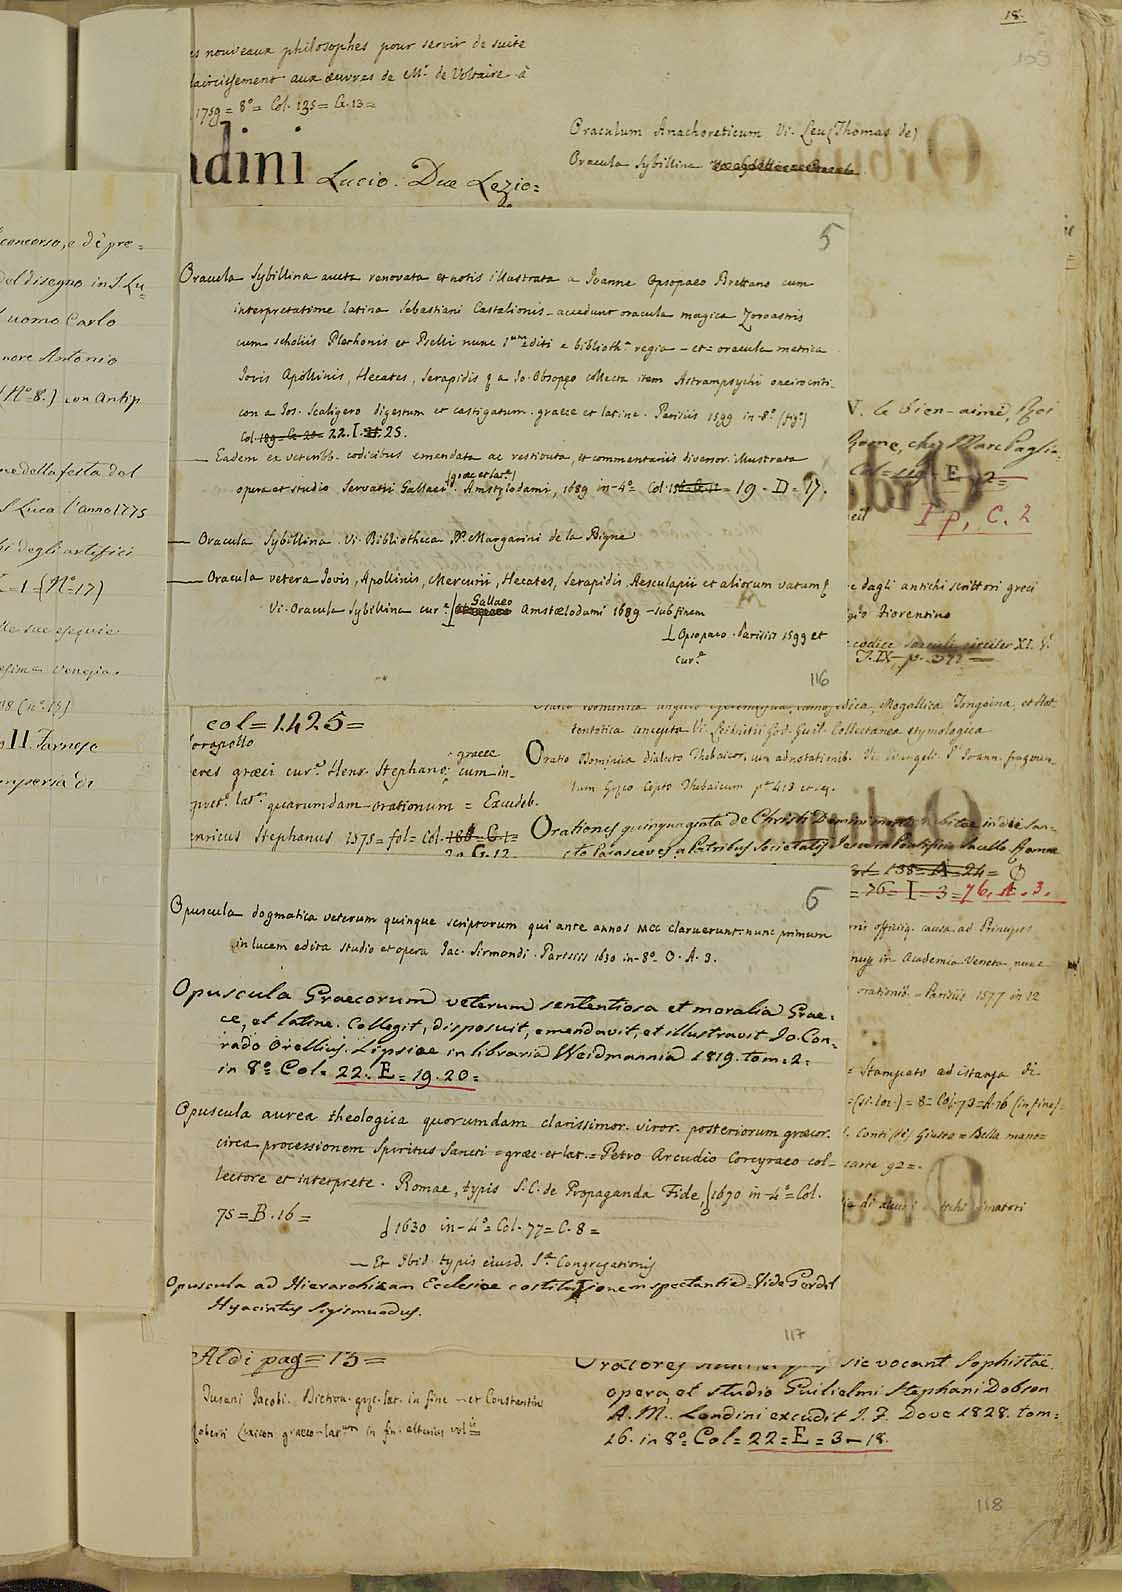 18.
105
es nouveaux philosophes pour servir de suite
laircissement aux œuvres de Mr. de Voltaire à
1759 = 8º = Col. 135 = G. 13 =
dini Lucio. Due Lezio=
Oraculum Anachoreticum Vi. Leu (Thomas de)
Oracula Sybillina
concorso, e di pre=
del disegno in S. Lu=
uomo Carlo
nore Antonio
(Nº 8.) con Antip
ne della festa del
S. Luca l'anno 1775
hi degli artefici
= 1 = (Nº 17)
lle sue esequie
esim = Venezia.
18 (nº 15)
II. Farnese
5
Oracula Sybillina aucta renovata et notis illustrata a Joanne Opsopaeo Brettano cum
interpretatione latina Sebastiani Castalionis - accedunt oracula magica Zoroastris
cum scholiis Plethonis et Pselli nunc 1um editi e biblioth.a regia - et = oracula metrica
Jovis Apollinis, Hecates, Serapidis & a Jo. Obsopeo collecta item Astrampsychi oneirocriti-
con a Jos. Scaligero digestum et castigatum. graece et latine. Parisiis 1599 in-8º (fig.)
Col. 189 = G. 20 = 22. I. 25.
— Eadem ex veteribb. codicibus emendata ac restituta, et commentariis diversor. illustrata
(graec et lat.)
opera et studio Servatii Gallaei. Amstelodami, 1689 in-4º Col. = 19 - D = 17.
— Oracula Sybillina. Vi. Bibliotheca PP. Margarini de la Bigne
— Oracula vetera Jovis, Apollinis, Mercurii, Hecates, Serapidis, Aesculapii et aliorum vatum &
Vi. Oracula Sybillina cur.e Gallaeo Amstelodami 1689 - sub finem
Opsopaeo. Parisiis 1599 et
cur.e
116
V. le bien-aimé, Roi
Rome, chez Marc Paglia=
Col = 119 - E - 2 =
I p, C. 2
e dagli antichi scrittori greci
gio Fiorentino
codice saeculi circiter XI. V.
T. IX. p.
col = 1425 =
orapollo
eres græci cur.e Henr. Stephano, graece cum in-
pret.e lat.e quarumdam orationum = Excudeb.
enricus Stephanus 1575 = fol = Col. 188 = G. 1 =
20 G. 12
Mogallica Tonguina, et Hot
tentotica concepta Vi. Leibnitii God. Guil. Collectanea etymologica
Oratio Dominica dialecto Thebaicor. cum adnotationib. Vi. Evangeli S. Joann. fragmen-
tum Græco Copto Thebaicum p. 413 et seq.
Orationes quinquaginta de Christi Domini morte habitae in die San-
cto Parasceves a Patribus Societatis Jesu in Pontificio Sacello Romae
138 = A = 24 =
= 76 = I = 3 = 76. A. 3.
6
Opuscula dogmatica veterum quinque scriptorum qui ante annos MCC claruerunt. nunc primum
in lucem edita studio et opera Jac. Sirmondi. Parisiis 1630 in-8º O. A. 3.
Opuscula Graecorum veterum sententiosa et moralia Grae=
ce, et latine. Collegit, disposuit, emendavit, et illustravit Jo. Con=
rado Orellius. Lipsiae in libraria Weidmannia 1819. tom. 2=
in 8º Col = 22. E = 19. 20=
Opuscula aurea theologica quorumdam clarissimor. viror. posteriorum græcor.
circa processionem Spiritus Sancti = græc. et lat. = Petro Arcudio Corcyraeo col=
lectore et interprete. Romae, typis S. C. de Propaganda Fide, 1670 in-4º = Col.
75 = B. 16 =
1630 in-4º = Col. 77 = C. 8 =
— Et Ibid. typis eiusd. S.ae Congregationis
Opuscula ad Hierarchicam Ecclesiae costitutionem spectantia = Vide Gerdil
Hyacintus Sigismundus.
117
offic
in Academia Veneta, nunc
orationib. = Parisiis 1577 in 12
Stampato ad istanza di
= 8 = Col. 73 = A. 16 (in fine)=
Conti (de) Giusto = Bella mano=
carte 92 =.
Aldi pag = 13 =
Tusani Jacobi. Diction. græc. lat. in fine - et Constantini
Roberti Lexicon graeco-latinum in fin. alterius vol.is
Oratores sic vocant Sophistae
opera, et studio Guilielmi Stephani Dobson
A. M. Londini excudit J. F. Dove 1828. tom=
16. in 8º = Col = 22 = E = 3 - 18.
118